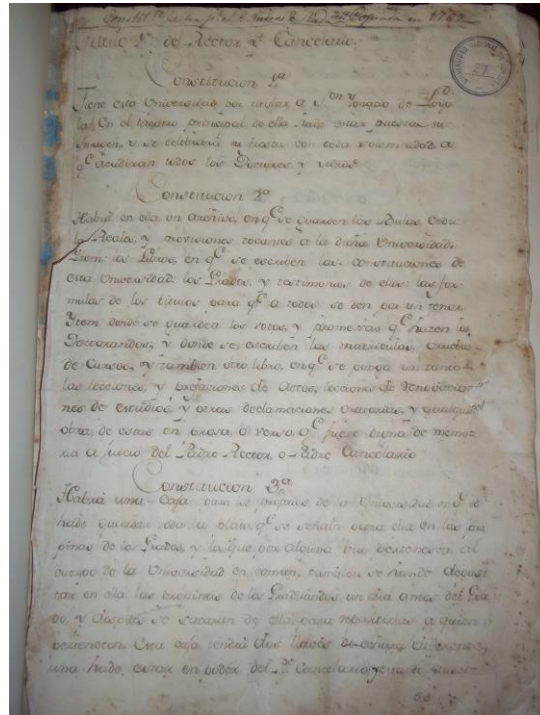 Titulo 1º de Rector y Cancelario.
Constitucion 1ª
Tiene esta Universidad por titular a Sn Ygnacio de Loyo
la. En el theatro principal de ella
Ymagen, y se celebrará su fiesta con toda solemnidad a
qe acudiran todos los Doctores, y
Constitucion 2ª
Habrá en ella un archivo, en qe se guarden las Bulas, Cedu
las Reales, y provisiones tocantes a la dicha Universidad.
Ytem: los Libros, en qe se escriben las constituciones de
esta Universidad: los Grados, y testimonios de ellos: las for
mulas de los titulos para qe a todos se den por un tenor.
Ytem donde se guarden los votos, y promesas qe hazen los
Doctorandos, y donde se escriben las matriculas, pruebas
de Cursos, y tambien otro libro, en qe se ponga un tanto de
las lecciones, y de Actos, lecciones de renovacio
nes de estudios, y otras declamaciones oratorias, y qualquier
obra de estas en prosa, o verso, qe fuere digna de memo
ria a juicio del Padre Rector o Padre Cancelario
Constitucion 3ª
Habrá una Caja de la Universidad en qe se
ha de guardar toda la plata qe se señala para ella en las pro
pinas de los Grados, y la que por alguna via perteneciere al
cuerpo de la Universidad en comun, tambien se han de deposi
tar en ella las propinas de los Graduandos un dia antes del Gra
do, y despues se sacaran de ella para repartirlas a quien
pertenecen. Esta caja tendrá dos llaves
una ha de estar en poder del Pe Cancelario,